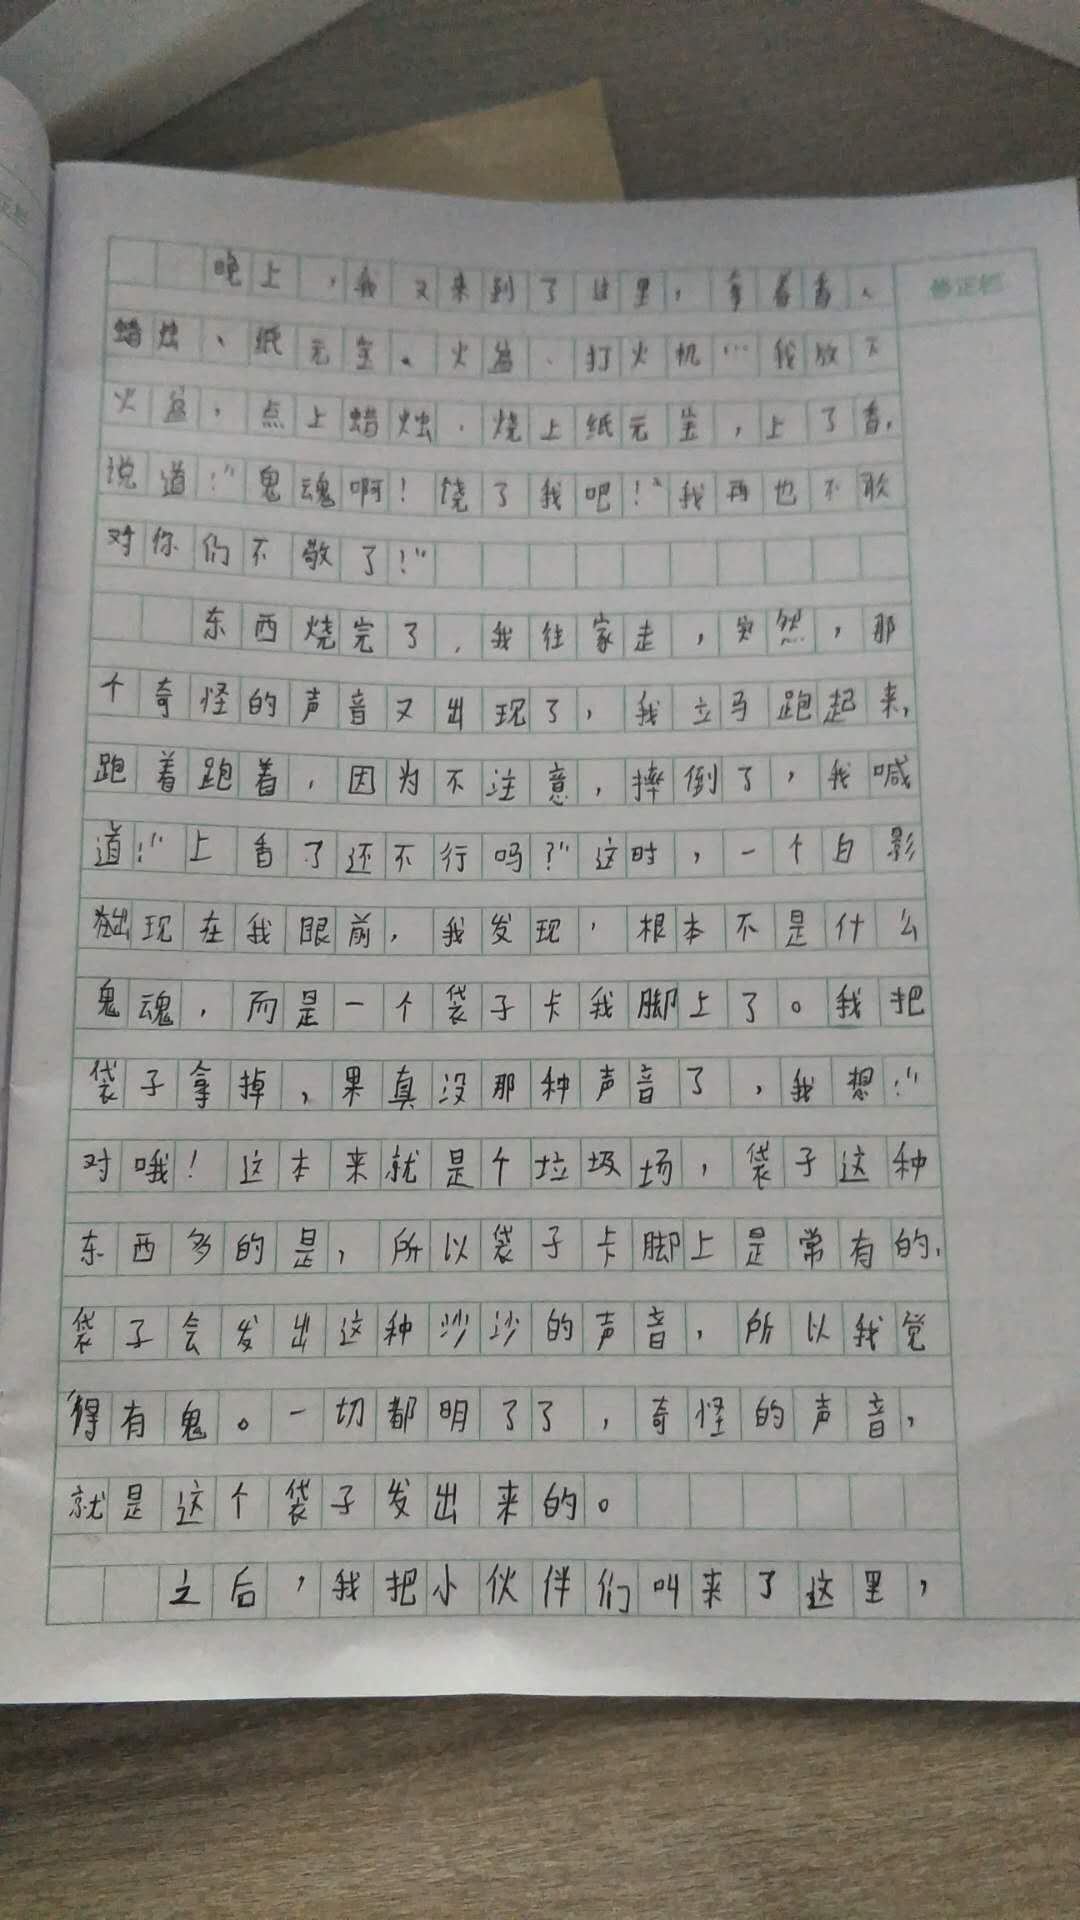 修正栏
晚上，我又来到了这里，拿着香、
蜡烛、纸元宝、火盆、打火机…我放下
火盆，点上蜡烛，烧上纸元宝，上了香，
说道：“鬼魂啊！饶了我吧！“我再也不敢
对你们不敬了！”
东西烧完了，我往家走，突然，那
个奇怪的声音又出现了，我立马跑起来，
跑着跑着，因为不注意，摔倒了，我喊
道：“上香了还不行吗？”这时，一个白影
出现在我眼前，我发现，根本不是什么
鬼魂，而是一个袋子卡我脚上了。我把
袋子拿掉，果真没那种声音了，我想：“
对哦！这本来就是个垃圾场，袋子这种
东西多的是，所以袋子卡脚上是常有的，
袋子会发出这种沙沙的声音，所以我觉
得有鬼。一切都明了了，奇怪的声音，
就是这个袋子发出来的。
之后，我把小伙伴们叫来了这里，